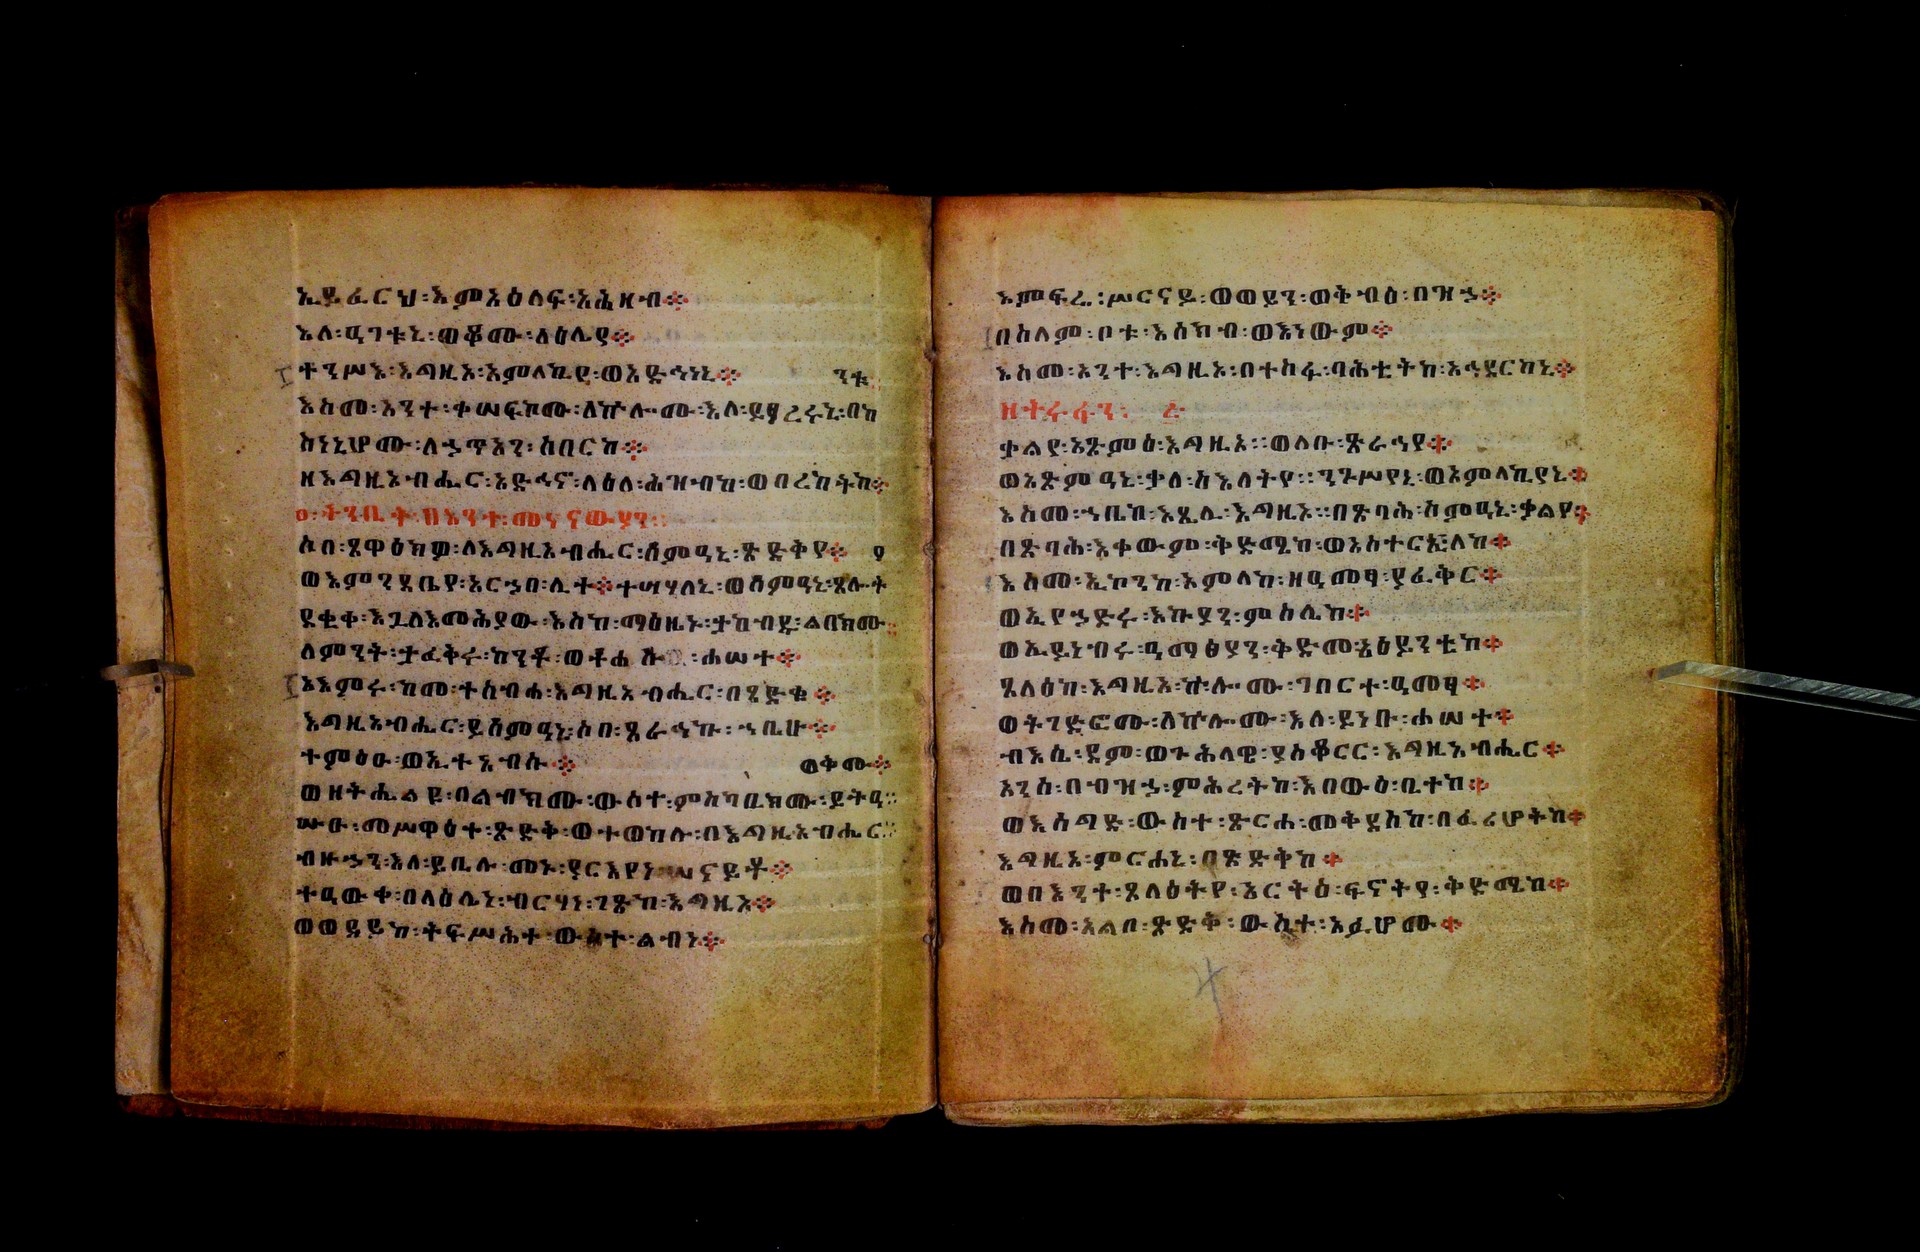 ኢይፈርህ፡እምአዕላፍ፡አሕዛብ፨
እለ፡ዒገቱኒ፡ወቆሙ፡ላዕሌየ፨
ተንሥእ፡እግዚኦ፡አምላኪየ፡ወአድኅነኒ፨
እስመ፡አንተ፡ቀሠፍኮሙ፡ለኵሎሙ፡እለ፡ይፃረሩኒ፡በከ
ንቱ፨
ስነኒሆሙ፡ለኃጥአን፡ሰበርከ፨
ዘእግዚአብሔር፡አድኅኖ፡ላዕለ፡ሕዝብከ፡ወበረከትከ፨
ሶበ፡ጸዋዕክዎ፡ለእግዚአብሔር፡ሰምዓኒ፡ጽድቅየ፨
ወእምንዳቤየ፡አርኀበ፡ሊተ፨ተሣሃለኒ፡ወስምዓኒ፡ጸሎት
የ
ደቂቀ፡እጓለእመሕያው፡እስከ፡ማዕዜኑ፡ታከብዱ፡ልበክሙ፨
ለምንት፡ታፈቅሩ፡ከንቶ፡ወተኀሡ፡ሐሠተ፨
አእምሩ፡ከመ፡ተሰብሐ፡እግዚአብሔር፡በጻድቁ፨
እግዚአብሔር፡ይሰምዓኒ፡ሶበ፡ጸራኅኩ፡ኀቤሁ፨
ተምዑ፡ወኢተአብሱ፨
ወዘትሔልዩ፡በልብክሙ፡ውስተ፡ምስካቢክሙ፡ይትዓ
ወቅሙ፨
ሡዑ፡መሥዋዕተ፡ጽድቅ፡ወተወከሉ፡በእግዚአብሔር፨
ብዙኃን፡እለ፡ይቤሉ፡መኑ፡ያርእየነ፡ሠናይቶ፨
ተዓውቀ፡በላዕሌነ፡ብርሃነ፡ገጽከ፡እግዚኦ፨
ወወደይከ፡ትፍሥሕተ፡ውስተ፡ልብነ፨
እምፍሬ፡ሥርናይ፡ወወይን፡ወቅብዕ፡በዝኃ፨
በሰላም፡ቦቱ፡እሰክብ፡ወእነውም፨
እስመ፡አንተ፡እግዚኦ፡በተስፋ፡ባሕቲትከ፡አኅደርከኒ፨
ቃልየ፡አጽምዕ፡እግዚኦ፡፡ወለቡ፡ጽራኅየ፨
ወአጽምዓኒ፡ቃለ፡ስእለትየ፡፡ንጉሥየኒ፡ወአምላኪየኒ፨
እስመ፡ኀቤከ፡እጼሊ፡እግዚኦ፡፡በጽባሕ፡ስምዓኒ፡ቃልየ፨
በጽባሕ፡እቀውም፡ቅድሜከ፡ወእስተርኢ፡ለከ፨
እስመ፡ኢኮንከ፡አምላከ፡ዘዓመፃ፡ያፈቅር፨
ወኢየኃድሩ፡እኩያን፡ምስሌከ፨
ወኢይነብሩ፡ዓማፅያን፡ቅድመ፡አዕይንቲከ፨
ጸላዕከ፡እግዚኦ፡ኵሎሙ፡ገበርተ፡ዓመፃ፨
ወትገድፎሙ፡ለኵሎሙ፡እለ፡ይነቡ፡ሐሠተ፨
ብእሴ፡ደም፡ወጕሕላዌ፡ያስቆርር፡እግዚአብሔር፨
አንሰ፡በብዝኃ፡ምሕረትከ፡እበውዕ፡ቤተከ፨
ወእሰግድ፡ውስተ፡ጽርሐ፡መቅደስከ፡በፈሪሆትከ፨
እግዚኦ፡ምርሐኒ፡በጽድቅከ፨
ወበእንተ፡ጸላዕትየ፡አርትዕ፡ፍኖትየ፡ቅድሜከ፨
እስመ፡አልቦ፡ጽድቅ፡ውስተ፡አፉሆሙ፨